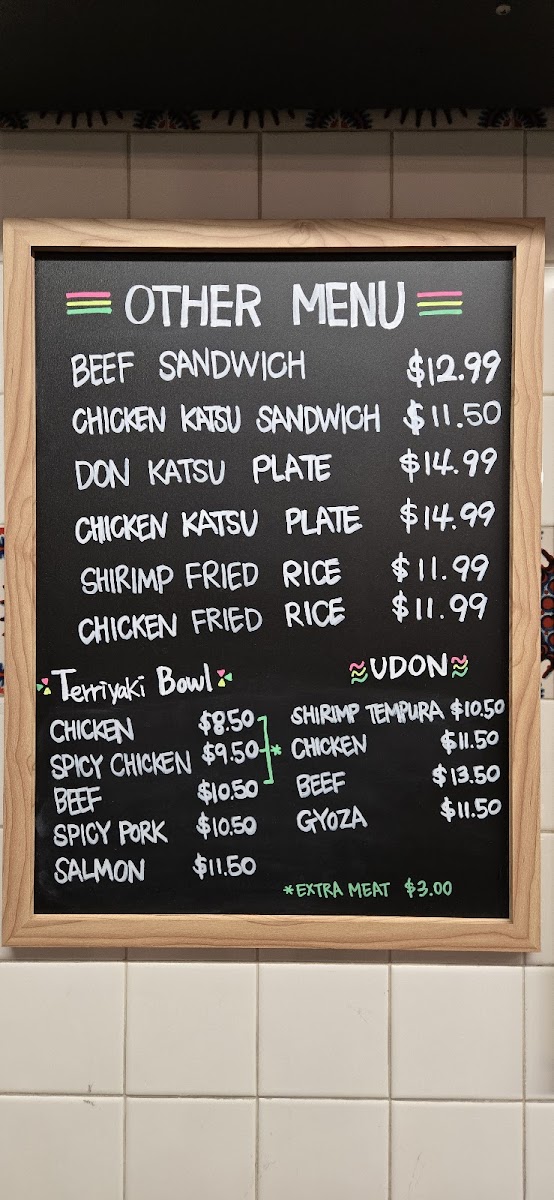 OTHER MENU
BEEF SANDWICH $12.99
CHICKEN KATSU SANDWICH $11.50
DON KATSU PLATE $14.99
CHICKEN KATSU PLATE $14.99
SHIRIMP FRIED RICE $11.99
CHICKEN FRIED RICE $11.99
Terriyaki Bowl
CHICKEN $8.50
SPICY CHICKEN $9.50 *
BEEF $10.50
SPICY PORK $10.50
SALMON $11.50
UDON
SHIRIMP TEMPURA $10.50
CHICKEN $11.50
BEEF $13.50
GYOZA $11.50
*EXTRA MEAT $3.00